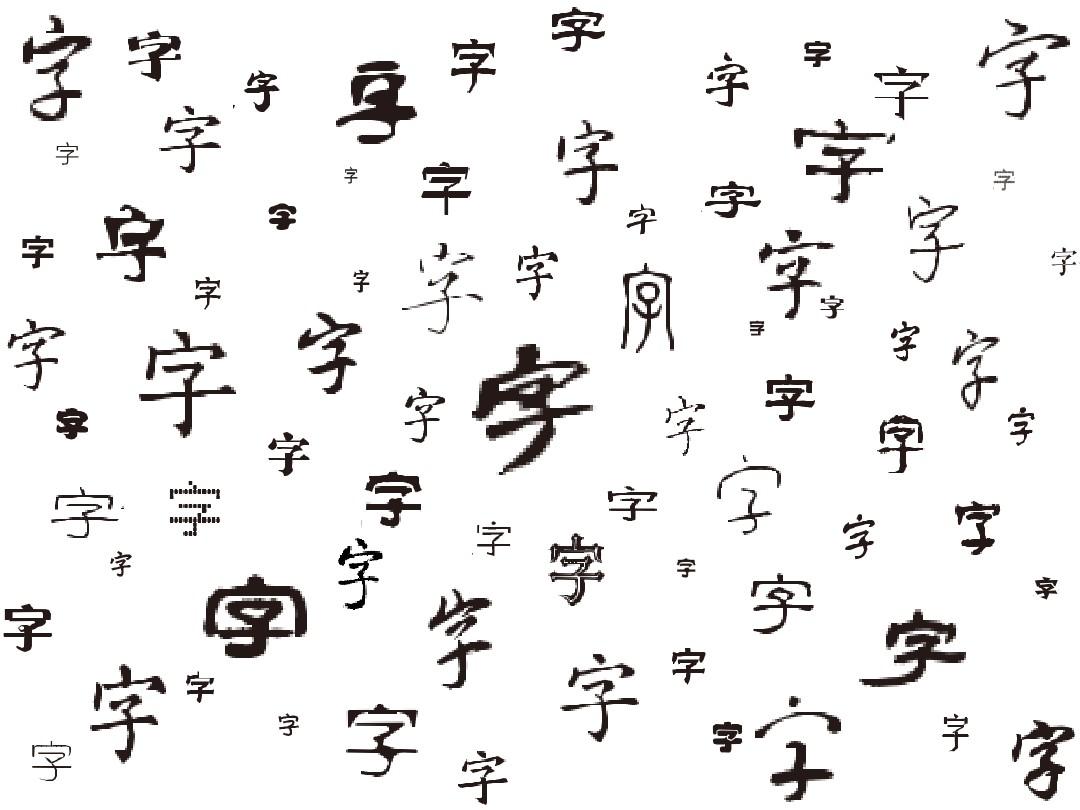 字 字 字 字 字 字 字 字 字 字
字 字 字 字 字 字 字 字
字 字 字 字 字 字
字 字 字 字 字 字 字 字
字 字 字 字 字 字
字 字 字 字 字 字 字
字 字 字 字 字 字 字 字
字 字 字 字 字 字
字 字 字 字
字 字 字 字
字 字 字 字 字 字 字 字